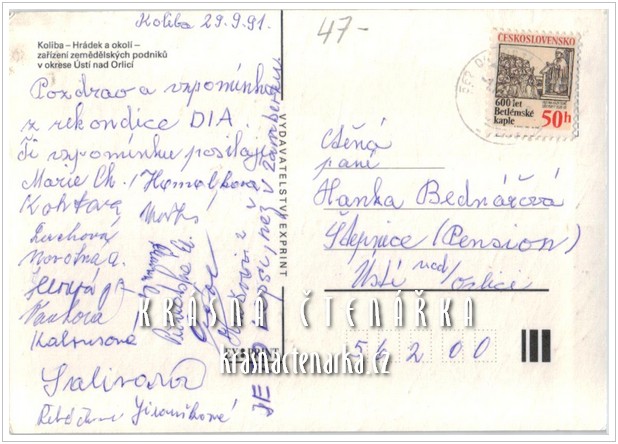 Koliba 29.9.91.
47-
Koliba – Hrádek a okolí –
zařízení zemědělských podniků
v okrese Ústí nad Orlicí
Pozdrav a vzpomínku
z rekondice DIA
Ti vzpomínku posílají
Marie Ch. Homolková
Kohutová
Zuchová
Novotná
Vaňková
Kalousová
Salivarová
Jiraníková
JE TO
lepší, než v Žamberku
VYDAVATELSTVÍ EXPRINT
ČESKOSLOVENSKO
600 let
Betlémské
kaple
50h
Ctěná
paní
Hanka Bednářová
Štěpnice (Pension)
Ústí nad
Orlicí
562 00
KRÁSNÁ ČTENÁŘKA
krasnactenarka.cz